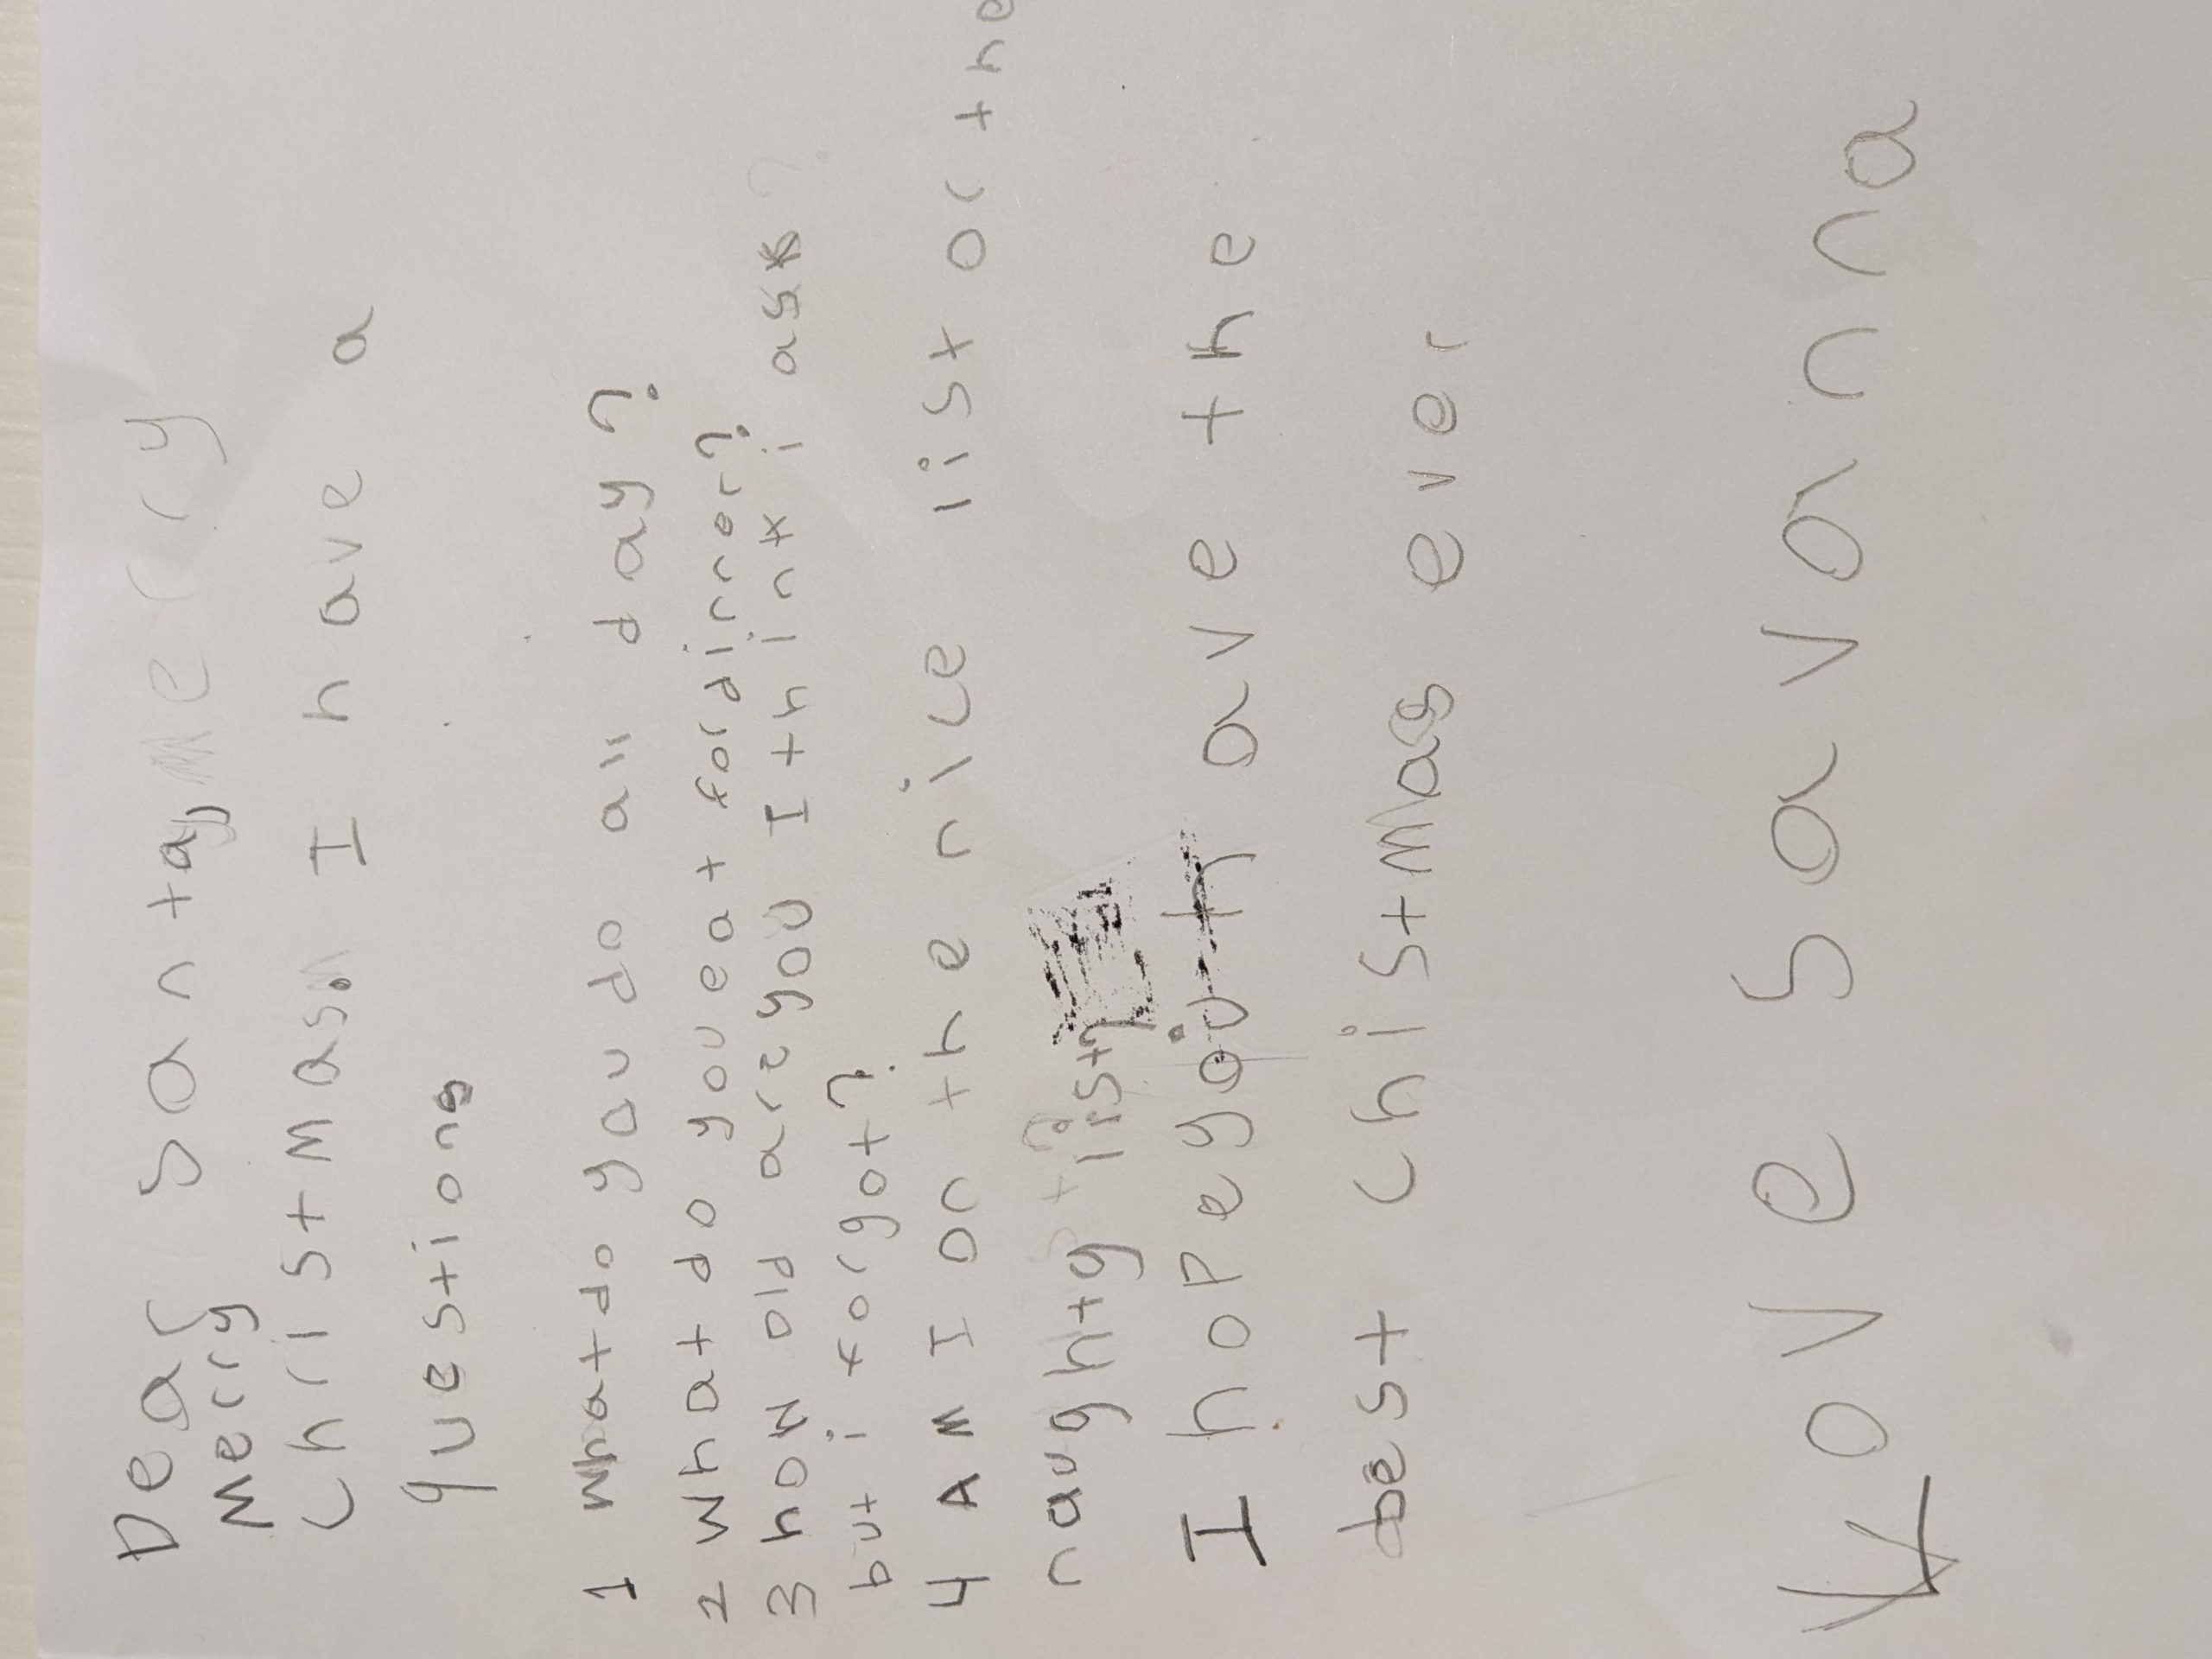 Dear santa,
Merry
christmas. I have a
questions
1 what do you do all day?
2 what do you eat for dinner?
3 how old are you I think i ask
but i forgot?
4 AM I on the nice list or the
naughty list?
I hope you have the
best chistmas ever
Love savanna